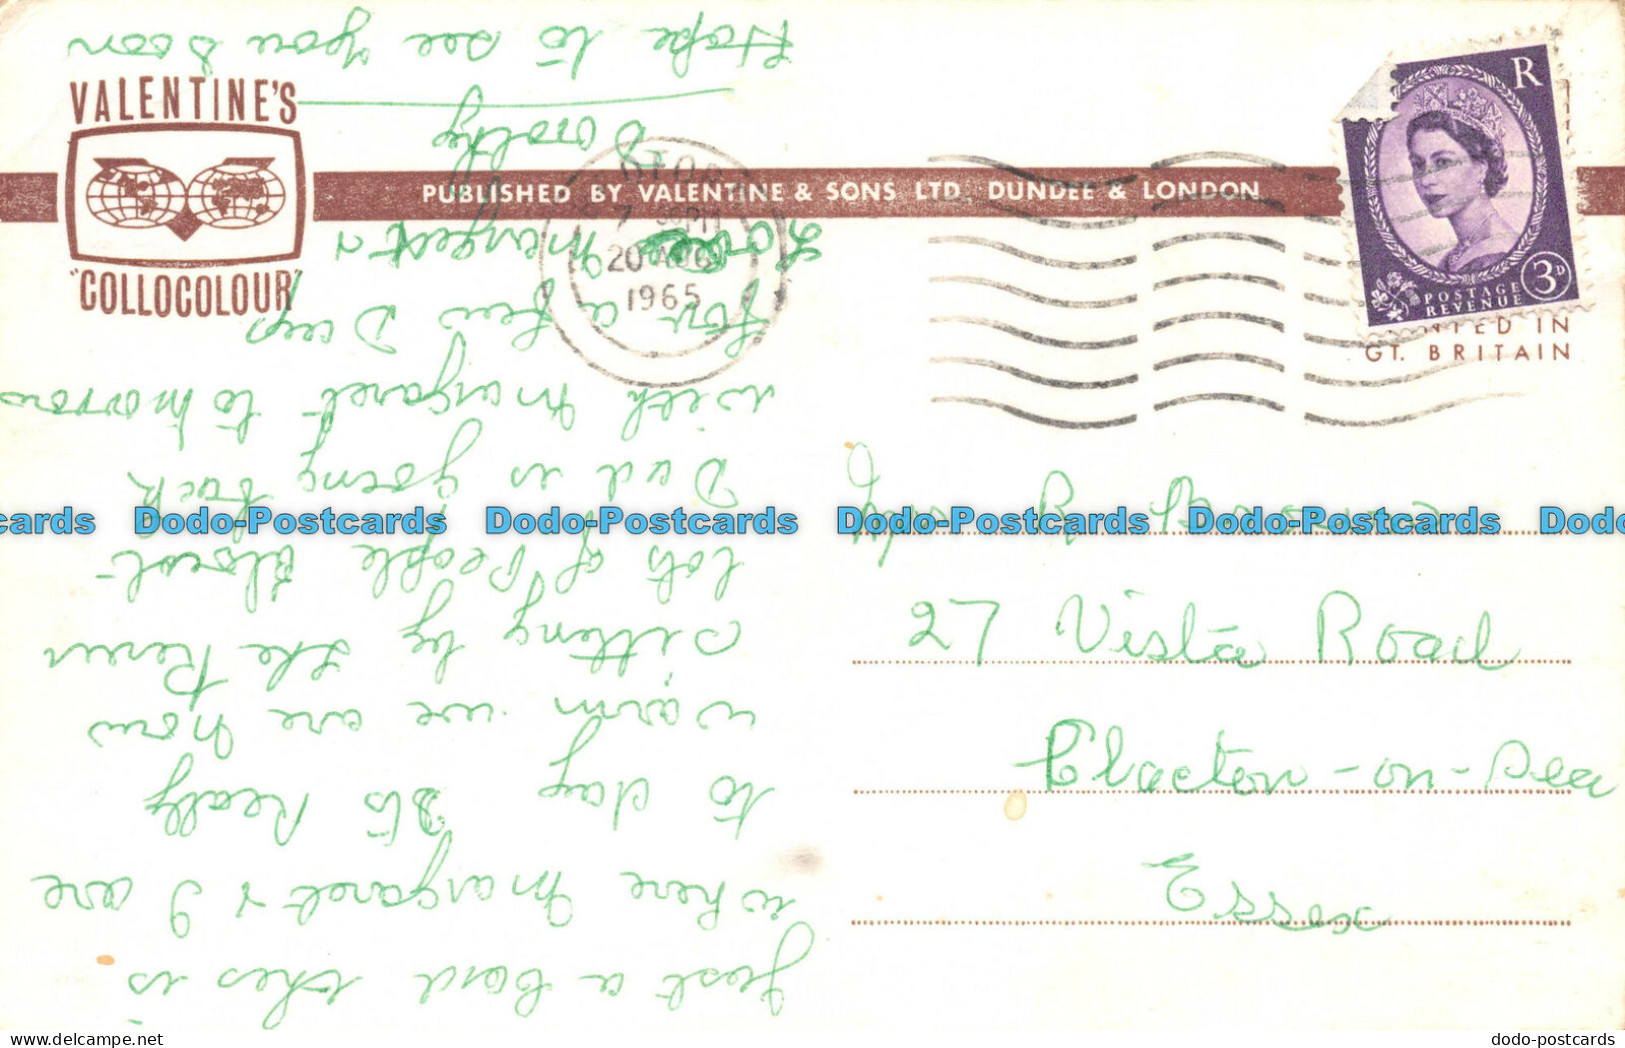 VALENTINE'S
"COLLOCOLOUR"
PUBLISHED BY VALENTINE & SONS LTD. DUNDEE & LONDON
R
3D
POSTAGE
REVENUE
IN
GT. BRITAIN
PM
20 AUG
1965
Just a Card this is
where Margaret & I are
to day Its Really
warm. we are now
sitting by the River
lots of People about
Dad is going back
with Margaret to morrow
for a few Days
Love Margaret &
Dorothy
Hope to see you soon
27 Vista Road
Clacton-on-Sea
Essex
Dodo-Postcards Dodo-Postcards Dodo-Postcards Dodo-Postcards
dodo-postcards